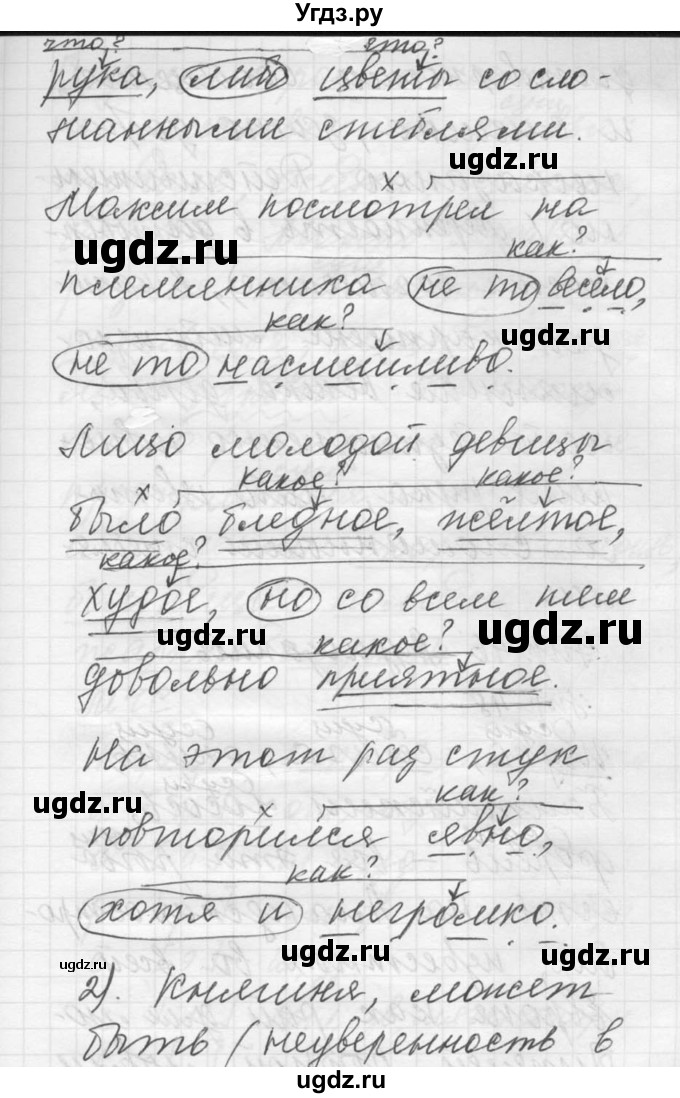 Угдз.ру
что? что?
рука, либо цветы со сло-
манными стеблями.
ugdz.ru
Максим посмотрел на
ugdz.ru как?
племянника не то весело,
как?
не то насмешливо.
Лицо молодой девицы
какое? какое?
было бледное, жёлтое,
какое?
худое, но со всем тем
ugdz.ru ugdz.ru
какое?
довольно приятное.
На этот раз стук
ugdz.ru как?
повторился явно,
как?
хотя и негромко.
ugdz.ru ugdz.ru
2). Княгиня, может
быть (неуверенность в
ugdz.ru